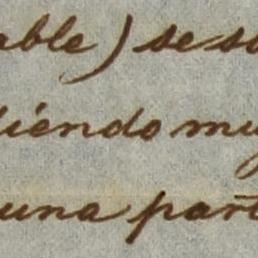 able) se so
diendo muy
una part